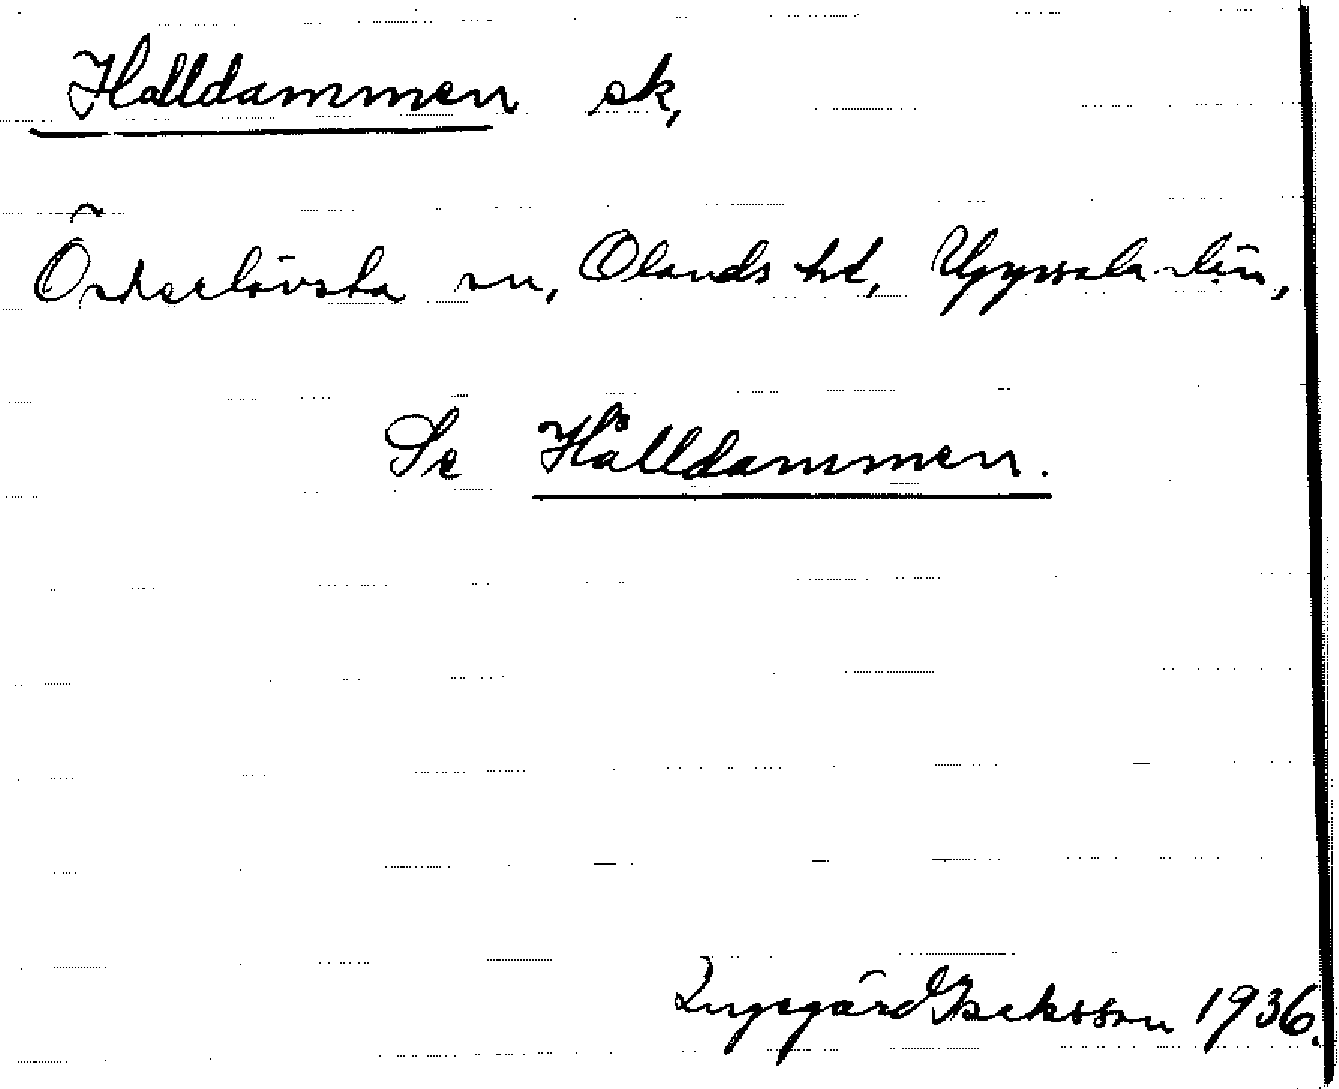 Halldammen sk,
Österlövsta sn, Olands hd, Uppsala län,
Se Hålldammen.
Ingegärd Isaksson 1936.